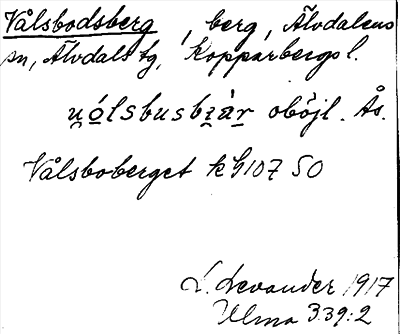 Vålsbodsberg, berg, Älvdalens
sn, Älvdals tg, Kopparbergs l.
u̯ó̲lsbusbi̯à̲r̲ oböjl. Ås.
Vålsboberget k G 107 SO
L. Levander 1917
Ulma 339:2